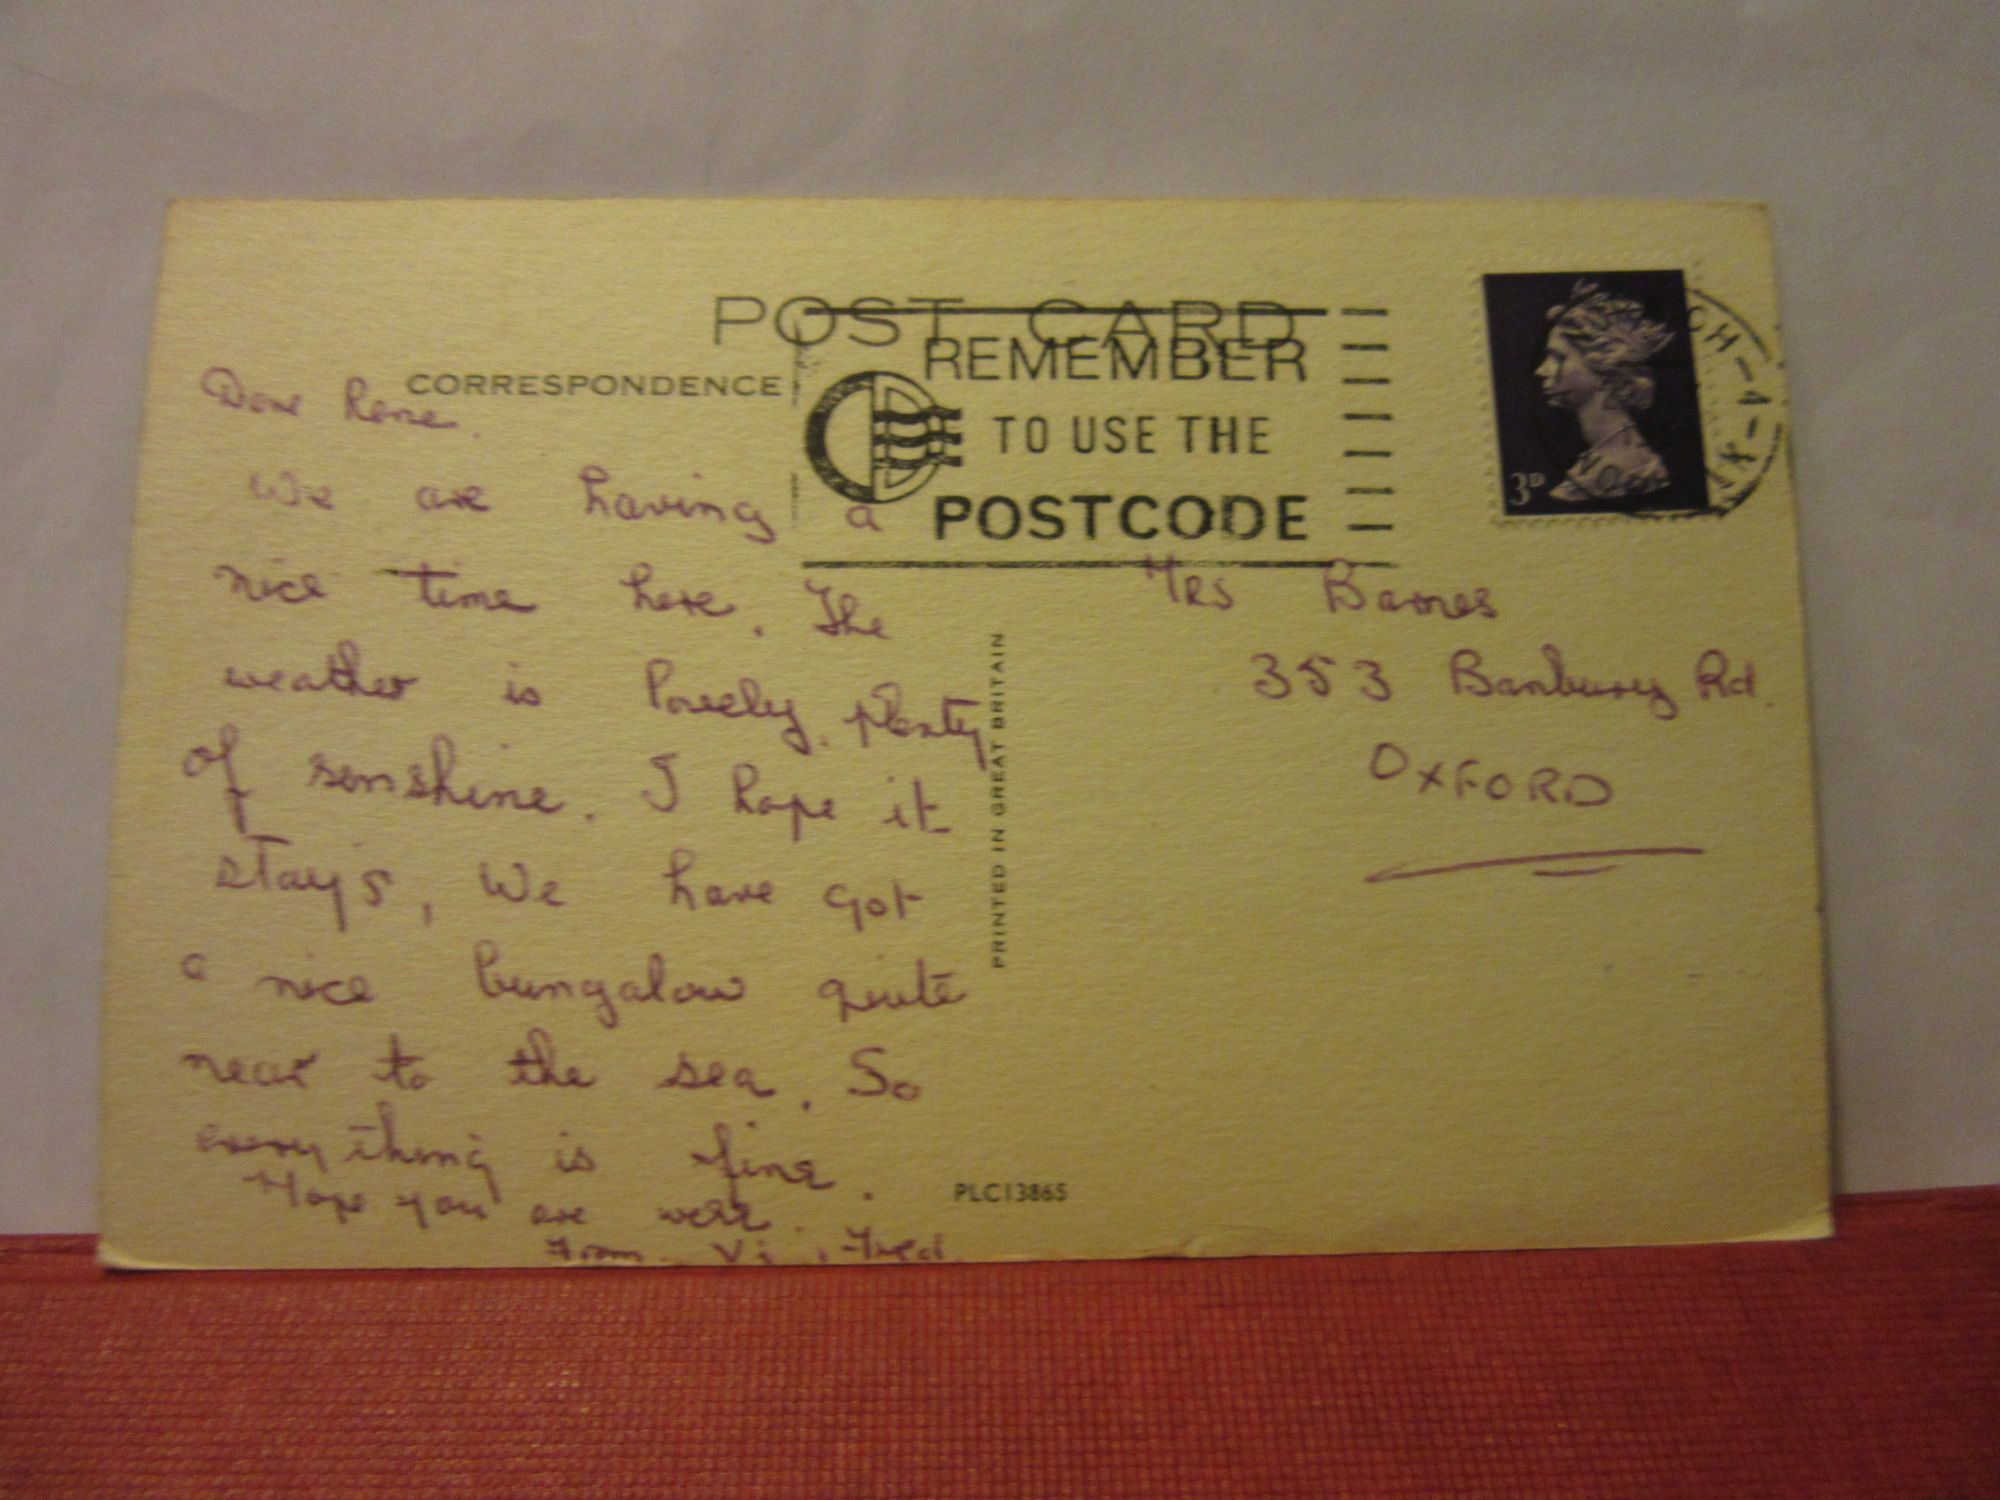 POST CARD
CORRESPONDENCE
REMEMBER
TO USE THE
POSTCODE
3D
CH
Dear Rene.
We are having a
nice time here. The
weather is lovely. Plenty
of sunshine. I hope it
stays, We have got
a nice bungalow quite
near to the sea. So
everything is fine.
Hope you are well.
From. Vi, Fred.
Mrs Barnes
353 Banbury Rd.
OXFORD
PRINTED IN GREAT BRITAIN
PLC13865